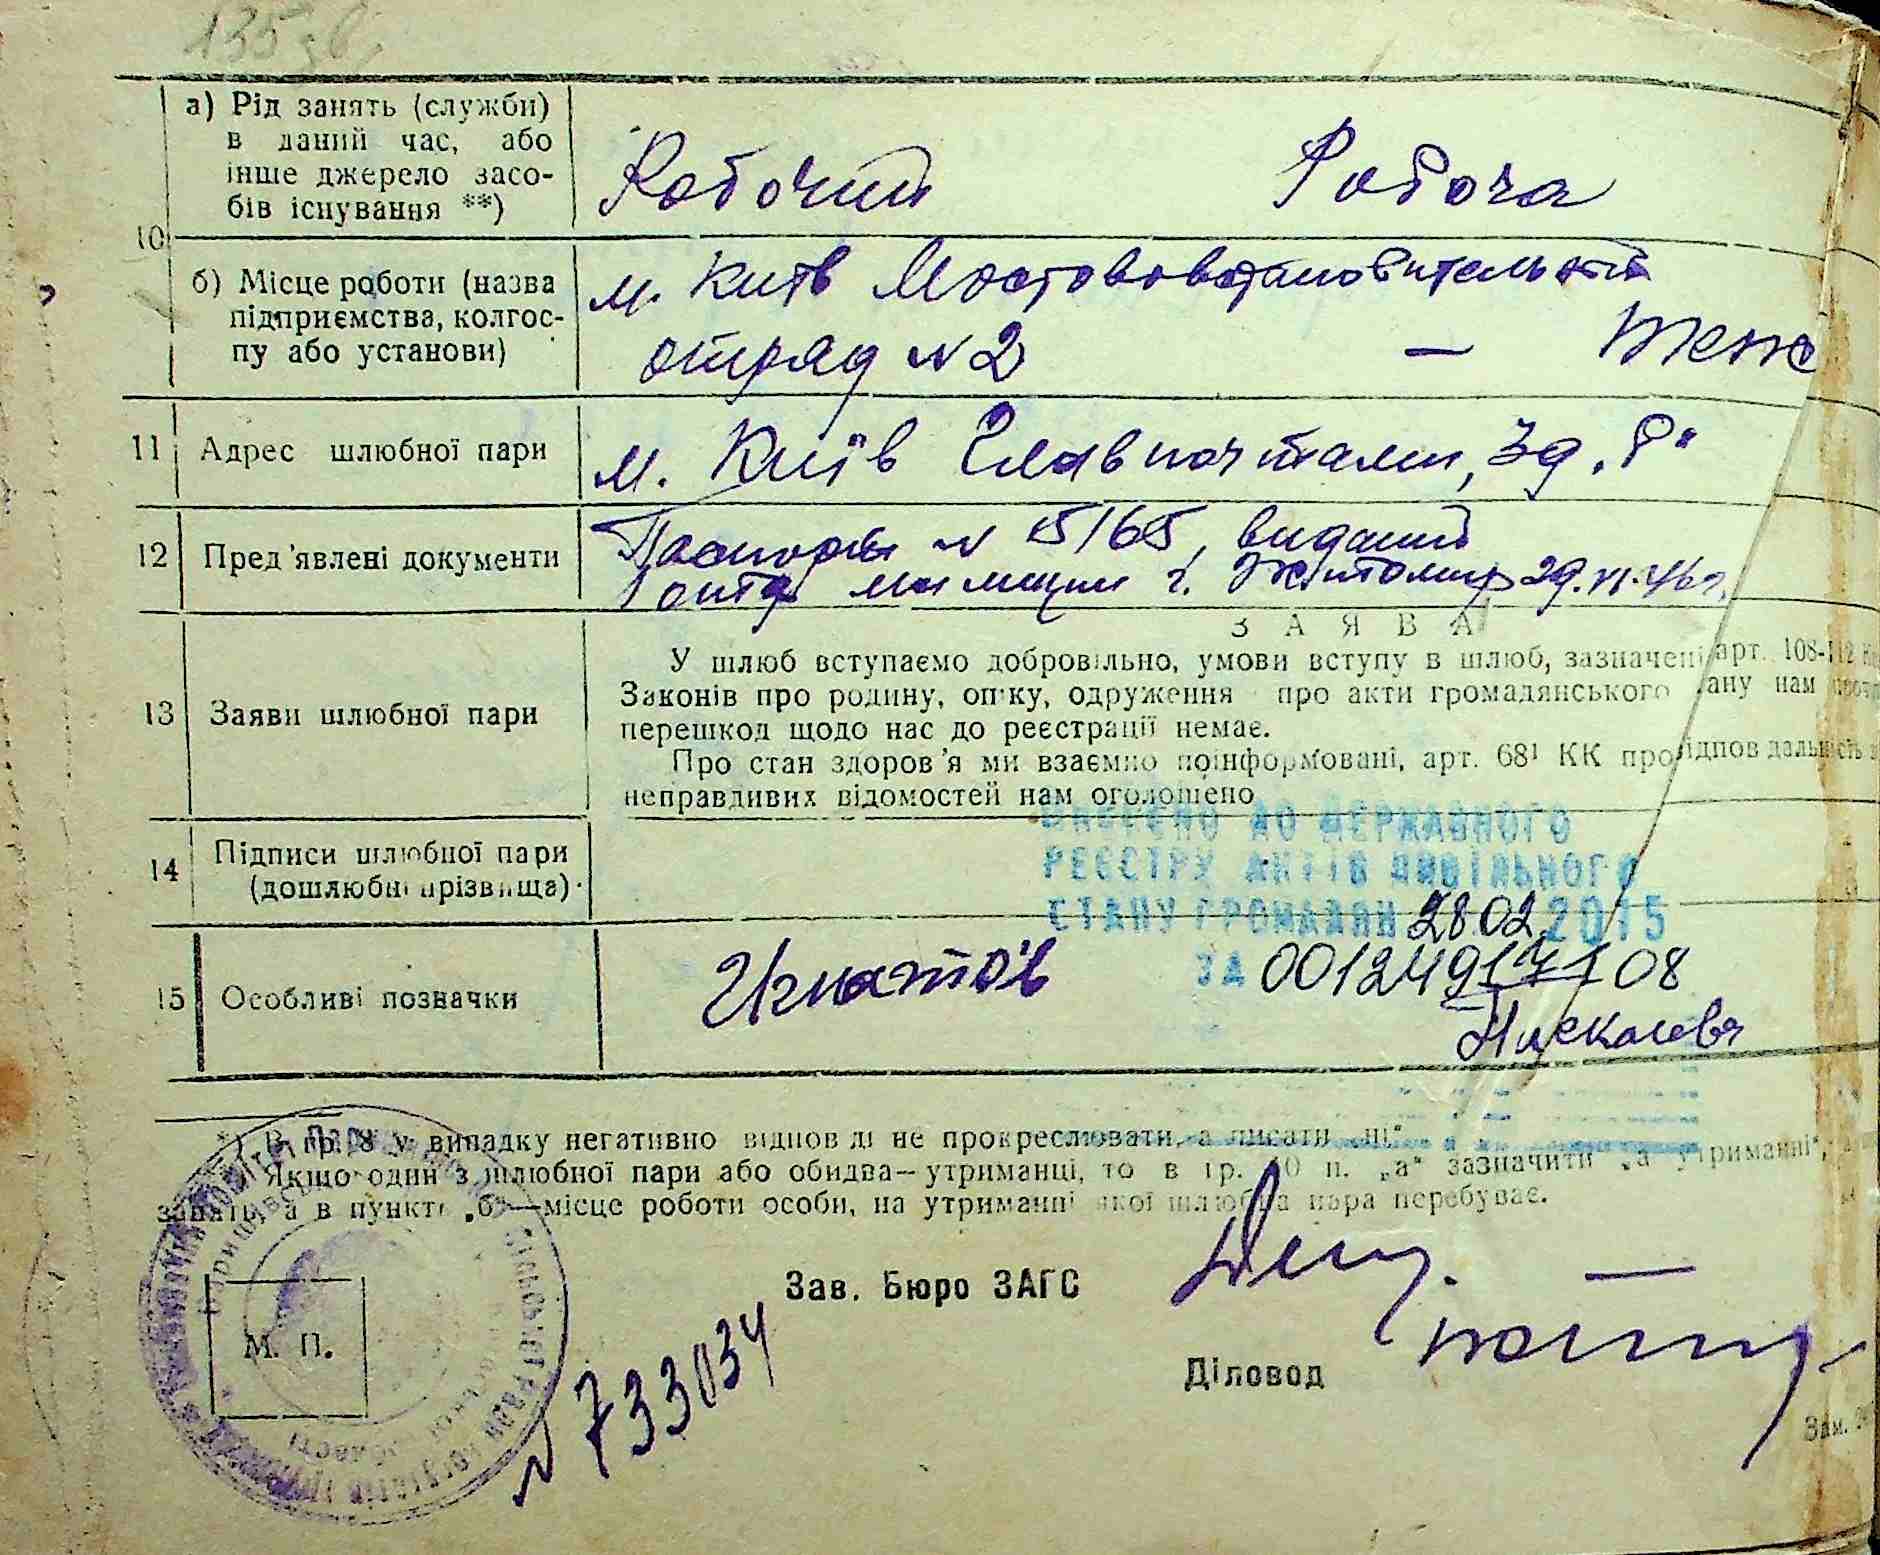 135 зв
а) Рід занять (служби)
в даний час, або
інше джерело засо-
бів існування **)
Робочий Робоча
10
б) Місце роботи (назва
підприємства, колгос-
пу або установи)
м. Київ Мостовосстановительний
отряд №2 —
11 Адрес шлюбної пари
м. Київ Главпочтамп, Зд. „Р"
12 Пред'явлені документи
Паспорт № 5165, виданий
милиции г. Житомир 29.VI.46г.
ЗАЯВА
13 Заяви шлюбної пари
У шлюб вступаємо добровільно, умови вступу в шлюб, зазначені арт. 108-112
Законів про родину, опіку, одруження про акти громадянського стану нам
перешкод щодо нас до реєстрації немає.
Про стан здоров'я ми взаємно поінформовані, арт. 68¹ КК про відповідальність
неправдивих відомостей нам оголошено
14 Підписи шлюбної пари
(дошлюбні прізвища)
ВНЕСЕНО ДО ДЕРЖАВНОГО
РЕЄСТРУ АКТІВ ЦИВІЛЬНОГО
СТАНУ ГРОМАДЯН 28.02.2015
ЗА 00124917108
15 Особливі позначки
Игнатов
*) В гр. 8 у випадку негативної відповіді не прокреслювати, а писати „ні"
Якщо один з шлюбної пари або обидва—утриманці, то в гр. 10 п. „а" зазначити „а утриманні",
занять, а в пункті „б"—місце роботи особи, на утриманні якої шлюбна пара перебуває.
Зав. Бюро ЗАГС
М. П.
№ 733034
Діловод
Зам.